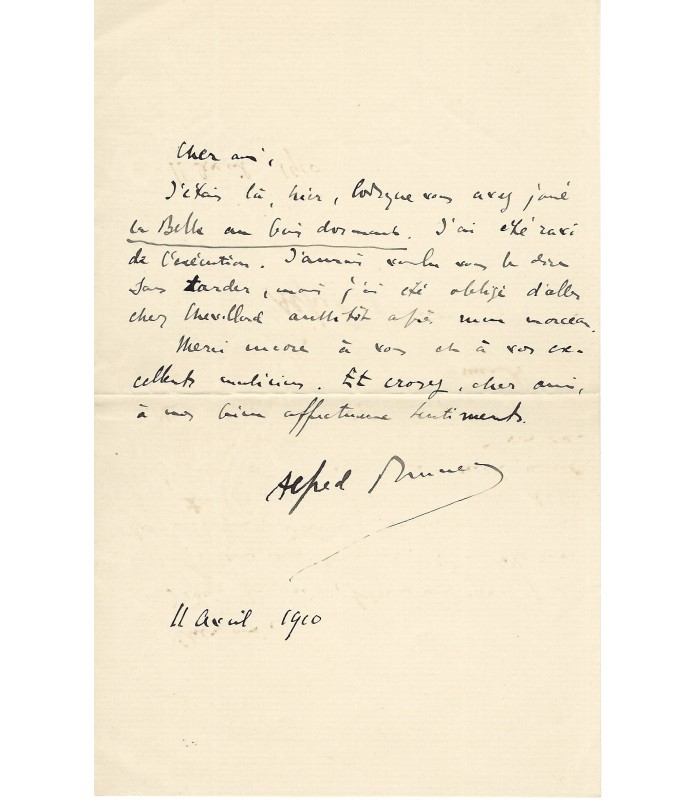 Cher ami,
J'étais là, hier, lorsque vous avez joué
la Belle au bois dormant. J'ai été ravi
de l'exécution. J'aurais voulu vous le dire
sans tarder, mais j'ai été obligé d'aller
chez Chevillard aussitôt après mon morceau.
Merci encore à vous et à vos ex-
cellents musiciens. Et croyez, cher ami,
à mes bien affectueux sentiments.
Alfred Bruneau
11 avril 1910